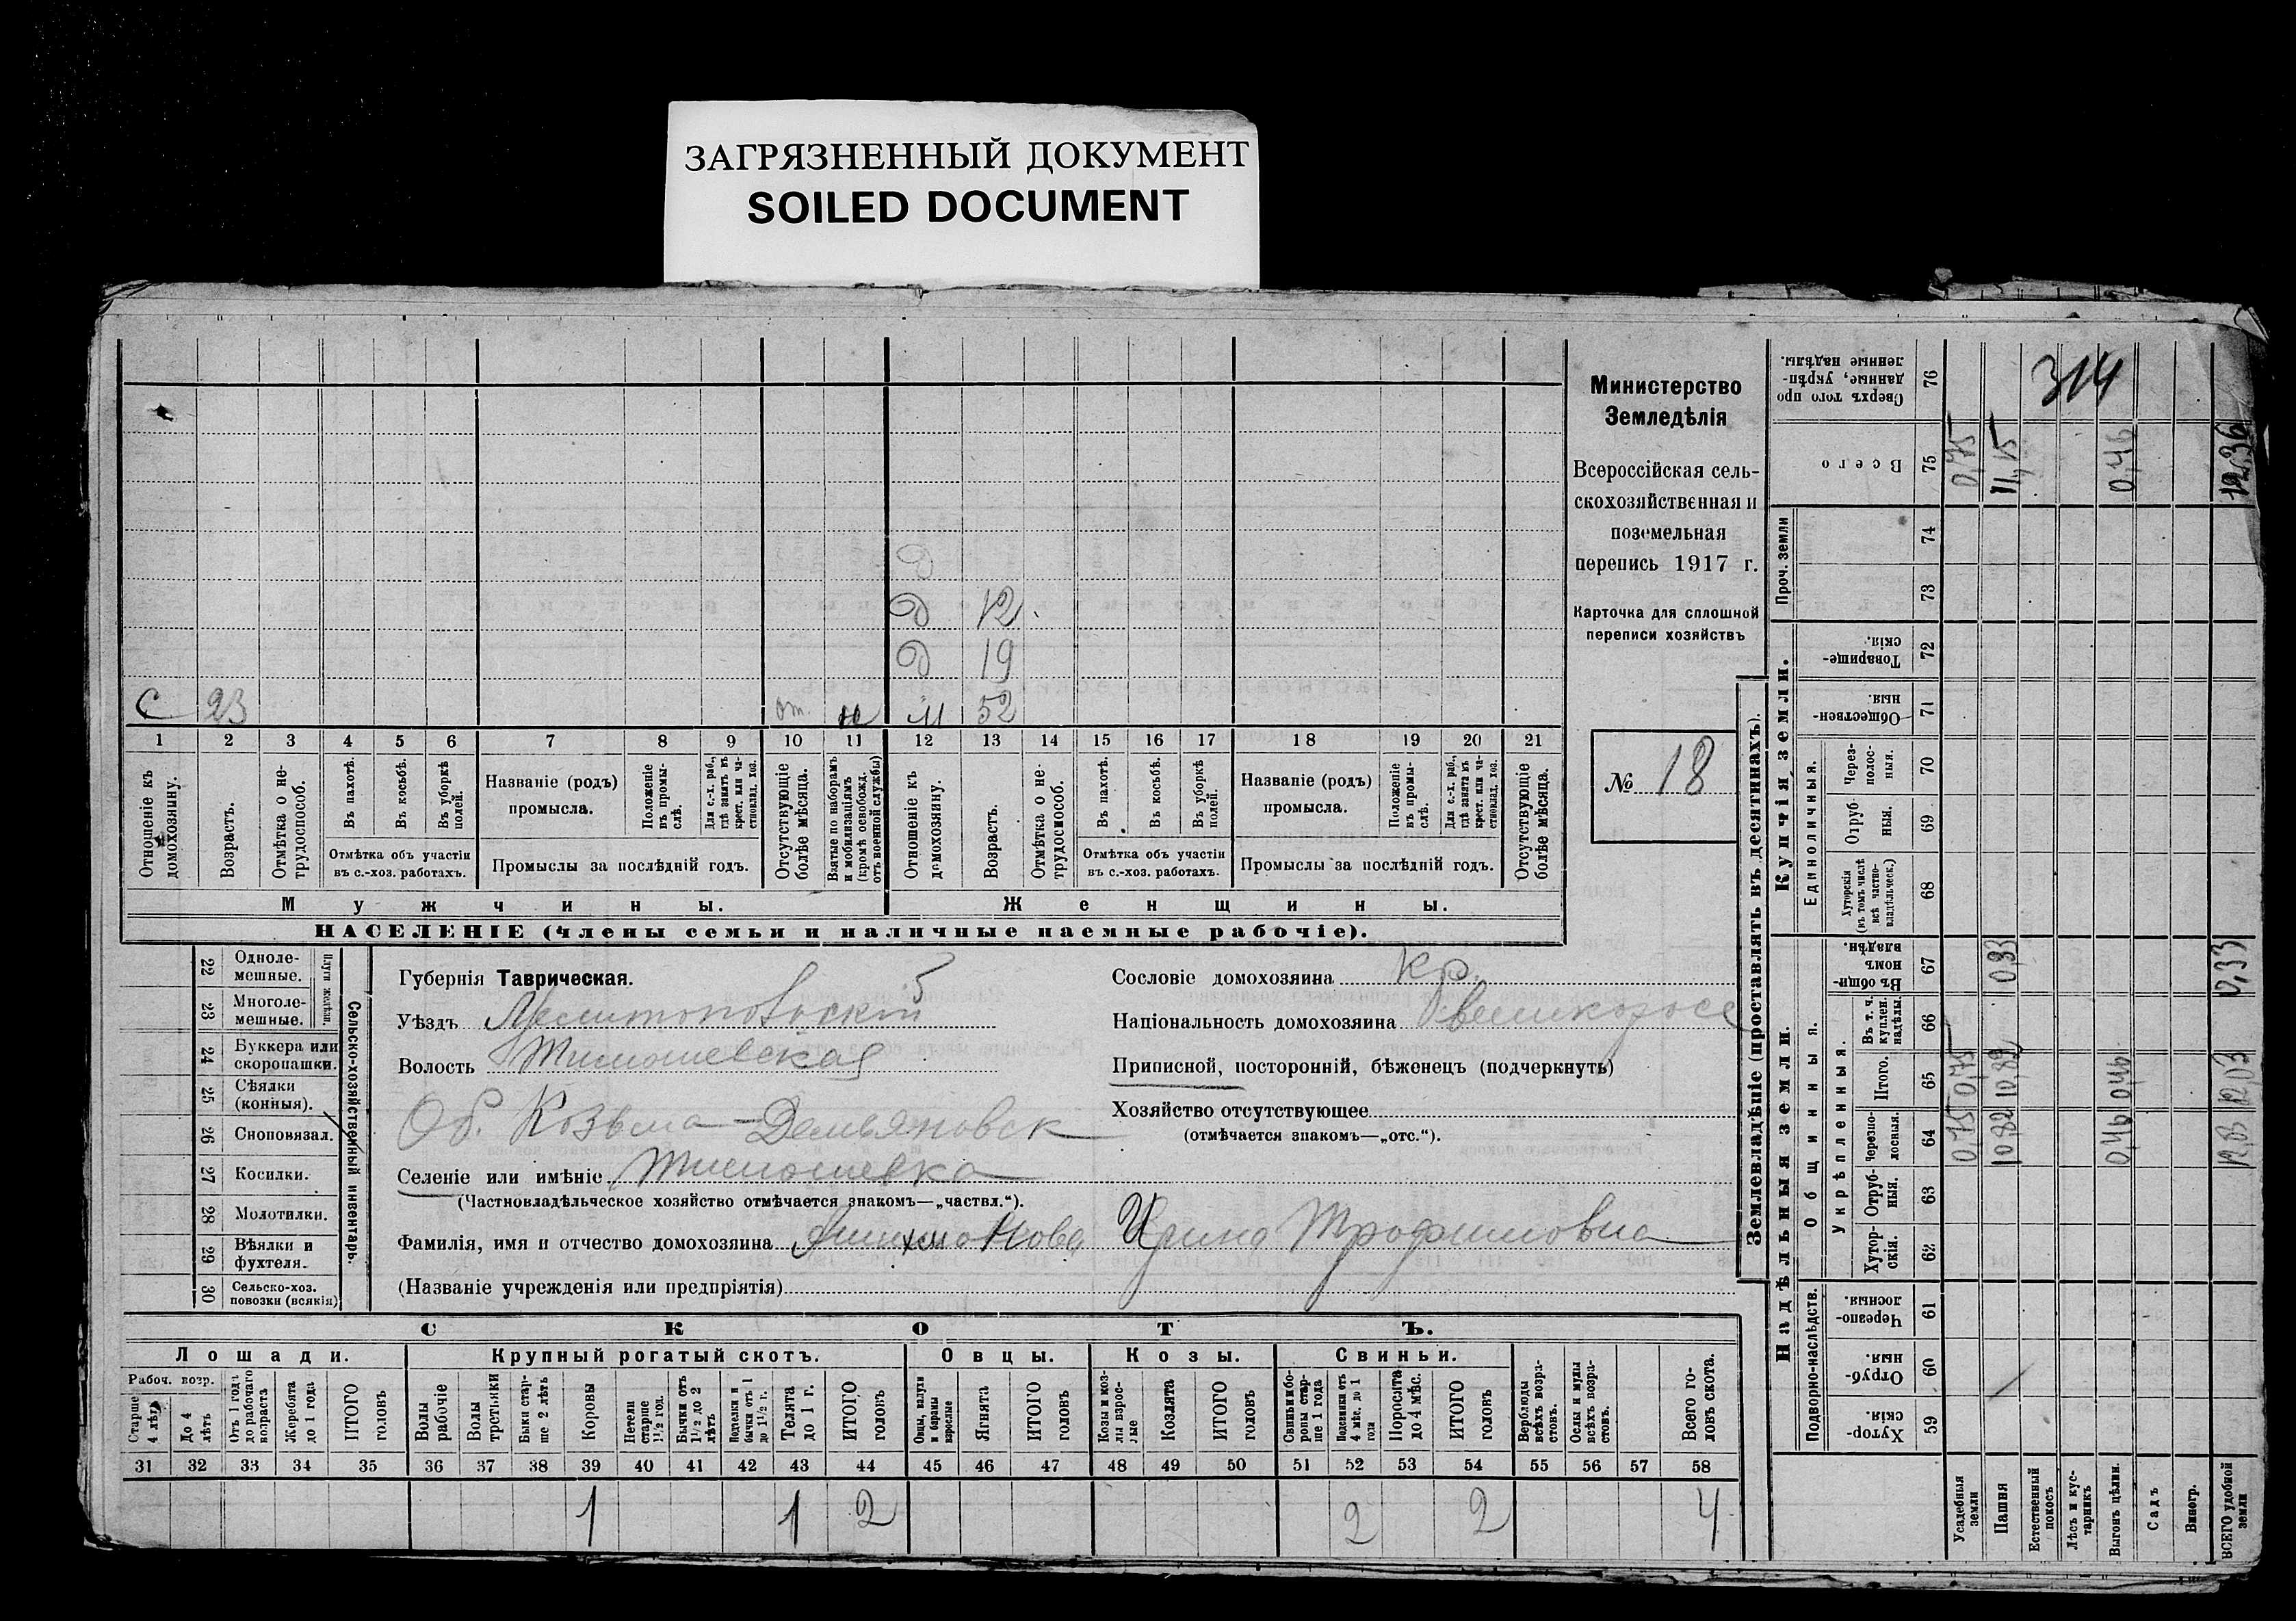 ЗАГРЯЗНЕННЫЙ ДОКУМЕНТ
SOILED DOCUMENT
Министерство
Земледѣлія
Всероссійская сель-
скохозяйственная и
поземельная
перепись 1917 г.
Карточка для сплошной
переписи хозяйствъ
№ 18
Д
Д 12
Д 19
С 23 от. н М 52
1 2 3 4 5 6 7 8 9 10 11 12 13 14 15 16 17 18 19 20 21
Отношеніе къ домохозяину.
Возрастъ.
Отмѣтка о не-трудоспособ.
Въ пахотѣ.
Въ косьбѣ.
Въ уборкѣ полей.
Отмѣтка объ участіи
въ с.-хоз. работахъ.
Названіе (родъ)
промысла.
Положеніе въ промы-слѣ.
Для с.-х. раб., гдѣ занятъ въ крест. или ча-стновлад. хоз.
Промыслы за послѣдній годъ.
Отсутствующіе болѣе мѣсяца.
Взятые по наборамъ и мобилизаціямъ (кромѣ освобожд. отъ военной службы)
Отношеніе къ домохозяину.
Возрастъ.
Отмѣтка о не-трудоспособ.
Въ пахотѣ.
Въ косьбѣ.
Въ уборкѣ полей.
Отмѣтка объ участіи
въ с.-хоз. работахъ.
Названіе (родъ)
промысла.
Положеніе въ промы-слѣ.
Для с.-х. раб., гдѣ занята въ крест. или ча-стновлад. хоз.
Промыслы за послѣдній годъ.
Отсутствующіе болѣе мѣсяца.
Мужчины. Женщины.
НАСЕЛЕНІЕ (члены семьи и наличные наемные рабочіе).
22 Одноле-мешные.
23 Многоле-мешные.
Плуги желѣзн.
24 Буккера или скоропашки.
25 Сѣялки (конныя).
26 Сноповязал.
27 Косилки.
28 Молотилки.
29 Вѣялки и фухтеля.
30 Сельско-хоз. повозки (всякія)
Сельско-хозяйственный инвентарь.
Губернія Таврическая.
Уѣздъ Мелитопольскій
Волость Тимошевская
Об. Козьма-Демьяновск
Селеніе или имѣніе Тимошевка
(Частновладѣльческое хозяйство отмѣчается знакомъ—„частвл.“).
Фамилія, имя и отчество домохозяина Ирина Трофимовна
(Названіе учрежденія или предпріятія)
Сословіе домохозяина кр.
Національность домохозяина великоросс
Приписной, посторонній, бѣженецъ (подчеркнуть)
Хозяйство отсутствующее
(отмѣчается знакомъ—„отс.“).
СКОТЪ.
Лошади. Крупный рогатый скотъ. Овцы. Козы. Свиньи.
Рабоч. возр.
Старше 4 лѣтъ
До 4 лѣтъ
Отъ 1 года до рабочаго возраста
Жеребята до 1 года
ИТОГО головъ
Волы рабочіе
Волы третьяки
Быки стар-ше 2 лѣтъ
Коровы
Нетели старше 1½ год.
Бычки отъ 1½ до 2 лѣтъ
Подтелки и бычки отъ 1 до 1½ г.
Телята до 1 г.
ИТОГО головъ
Овцы, валухи и бараны взрослые
Ягнята
ИТОГО головъ
Козы и коз-лы взрос-лые
Козлята
ИТОГО головъ
Свиньи и бо-ровы стар-ше 1 года
Подсвинки отъ 4 мѣс. до 1 года
Поросята до 4 мѣс.
ИТОГО головъ
Верблюды всѣхъ возра-стовъ.
Ослы и мулы всѣхъ возра-стовъ.
Всего го-ловъ скота.
31 32 33 34 35 36 37 38 39 40 41 42 43 44 45 46 47 48 49 50 51 52 53 54 55 56 57 58
1 1 2 2 2 4
Землевладѣніе (проставлять въ десятинахъ).
Надѣльныя земли. Купчія земли. Проч. земли
Подворно-наслѣдств.
Общинныя.
Укрѣпленныя.
Единоличныя.
Хутор-скія. 59
Отруб-ныя. 60
Черезпо-лосныя. 61
Хутор-скія. 62
Отруб-ныя. 63
Черезпо-лосныя. 64
Итого. 65
Въ т. ч. куплен. надѣлы. 66
Въ общи-номъ владѣн. 67
Хуторскія (въ томъ числѣ всѣ частно-владѣльческ.) 68
Отруб ныя. 69
Через-полос-ныя. 70
Обществен-ныя. 71
Товарище-скія. 72
73
74
Всего 75
Сверхъ того про данные, укрѣп-ленные надѣлы. 76
314
Усадебныя земли 0,75 0,75 0,75
Пашня 10,82 10,82 0,33 11,15
Естественный покосъ
Лѣсъ и кус-тарникъ
Выгонъ цѣлин. 0,46 0,46 0,46
Садъ
Виногр.
ВСЕГО удобной земли 12,03 12,03 0,33 12,36